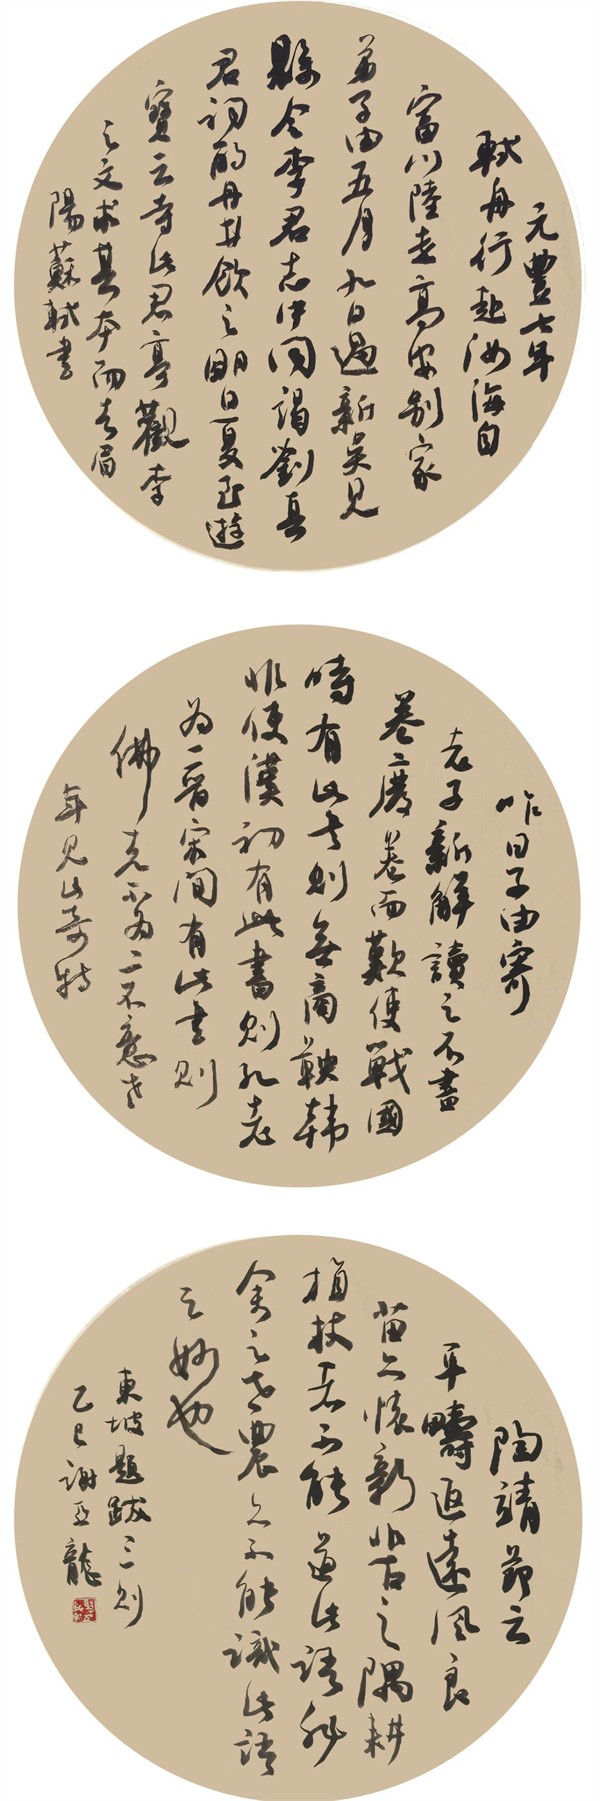 元豐七年
軾舟行赴汝海自
富川陸走高安別家
弟子由五月九日過新吳見
縣令李君志中同謁劉真
君祠酌丹井飲之明日夏至遊
寶云寺此君亭觀李
之文求其本而去眉
陽蘇軾書
昨日子由寄
老子新解讀之不盡
卷二廢卷而歎使戰國
時有此書則無商鞅韓
非使漢初有此書則孔老
為一晉宋間有此書則
佛老不為二不意老
年見此奇特
陶靖節云
平疇返遠風良
苗亦懷新非古之隅耕
植杖者不能道此語非
余之世農亦不能識此語
之妙也
東坡題跋三則
乙巳謝亞龍